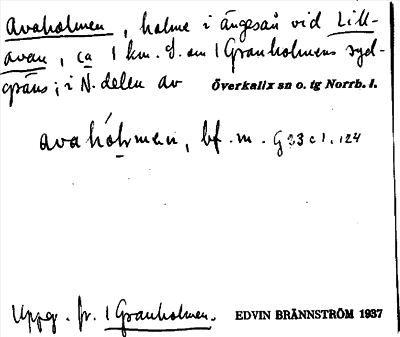 Avaholmen, holme i ängesån vid Lill-
avan, ca 1 km. S. om 1 Granholmens syd-
gräns; i N. delen av Överkalix sn o. tg Norrb. l.
avahólmen, bf. m. G 33 c 1. 124
Uppg. fr. 1 Granholmen. EDVIN BRÄNNSTRÖM 1937